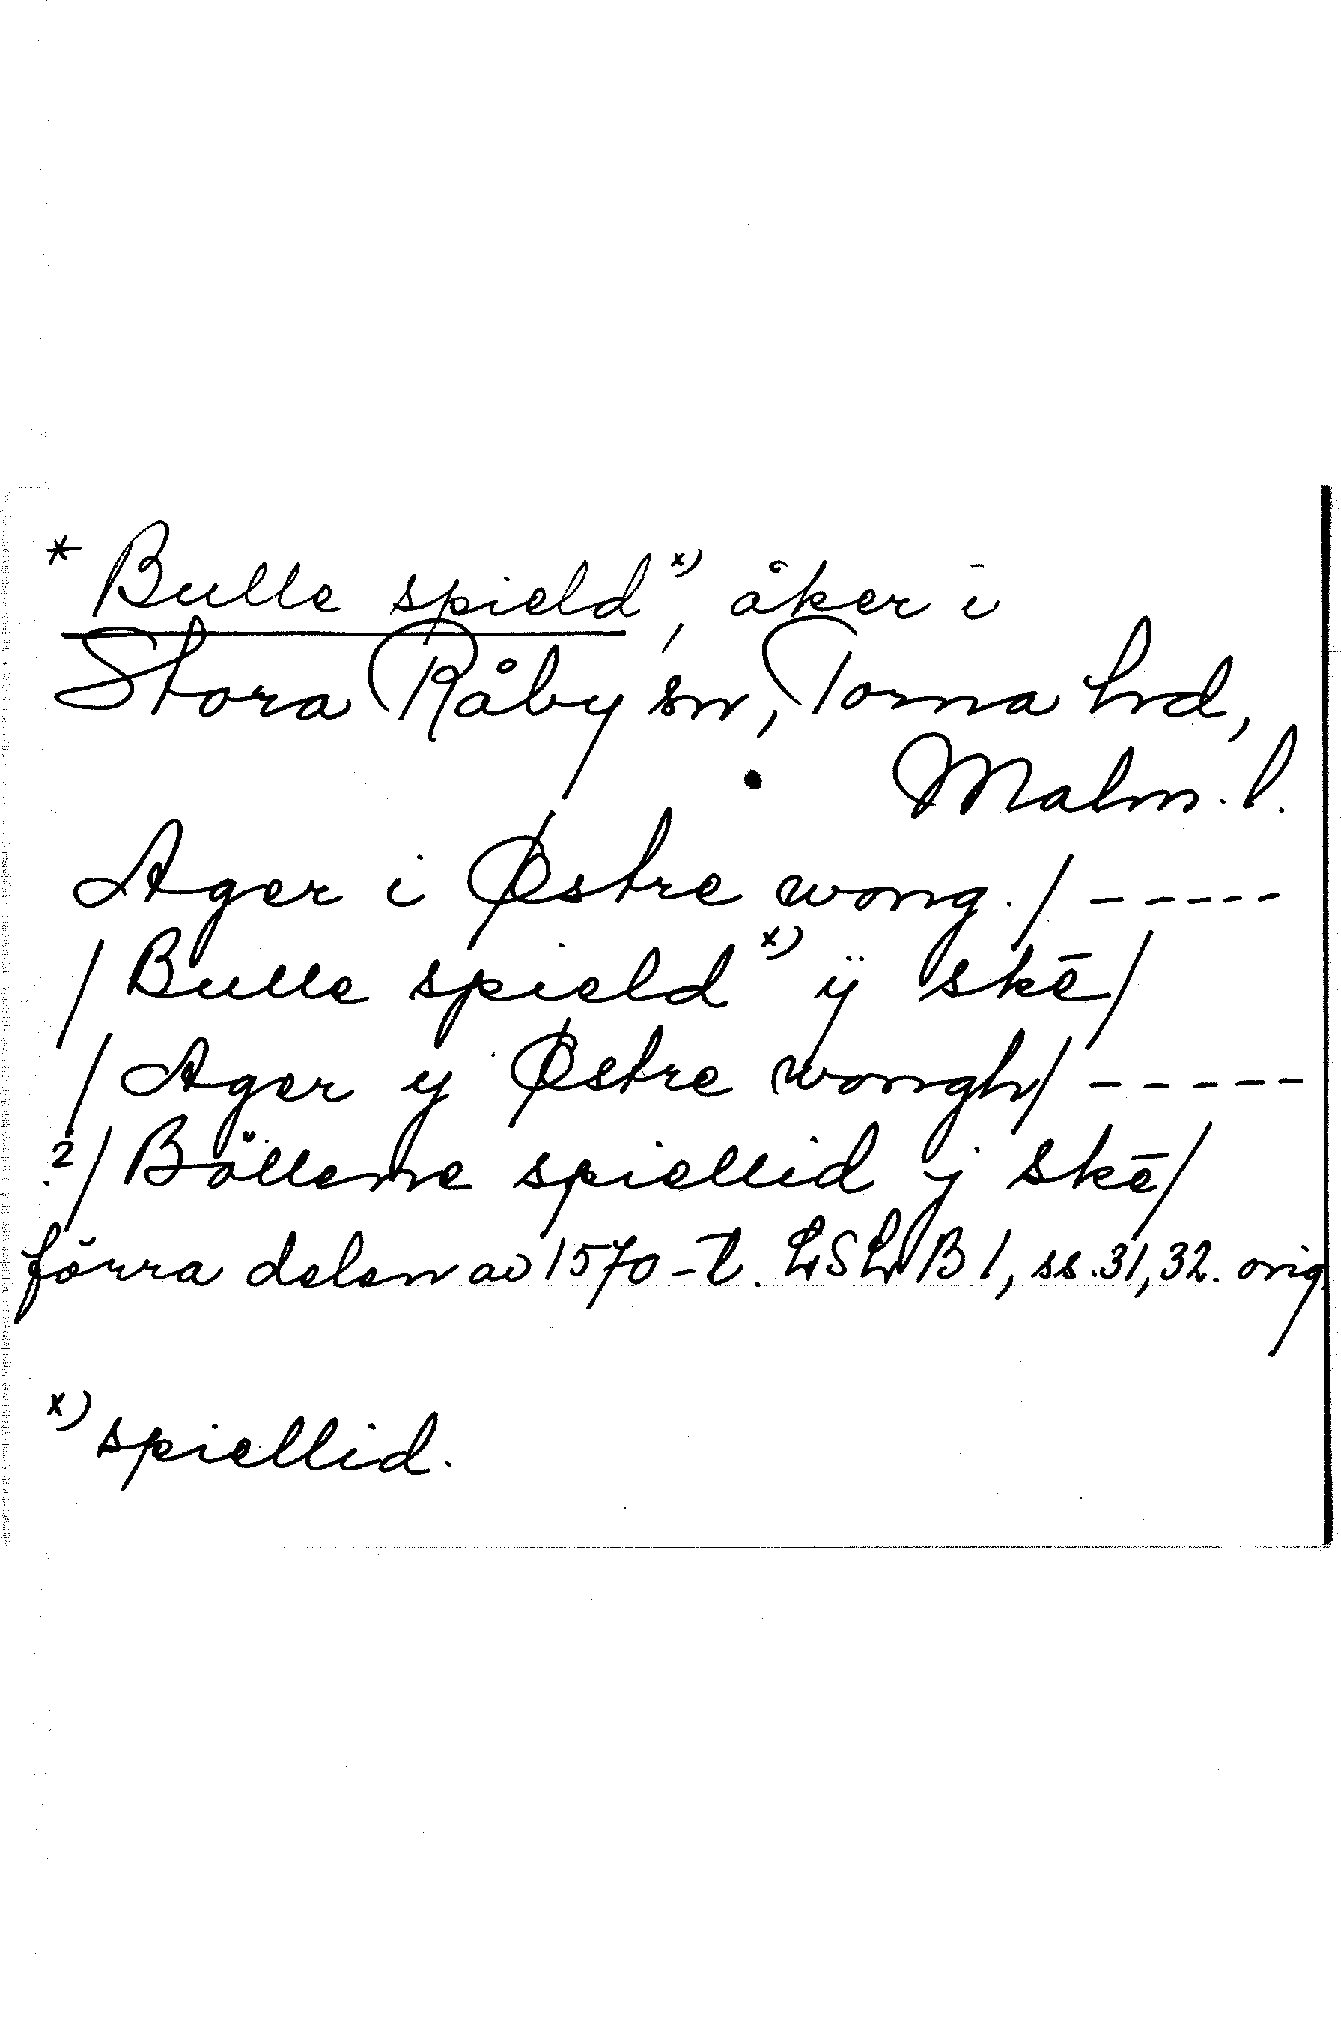 * Bulle spield x), åker i
Stora Råby sn, Torna hrd,
Malm. l.
Ager i Østre wong. / -----
/ Bulle spield x) ÿ skē /
/ Ager y Østre wongh / -----
2 / Böllerne spiellid j skē /
förra delen av 1570-t. LSLB 1, ss. 31, 32. orig.
x) spiellid.